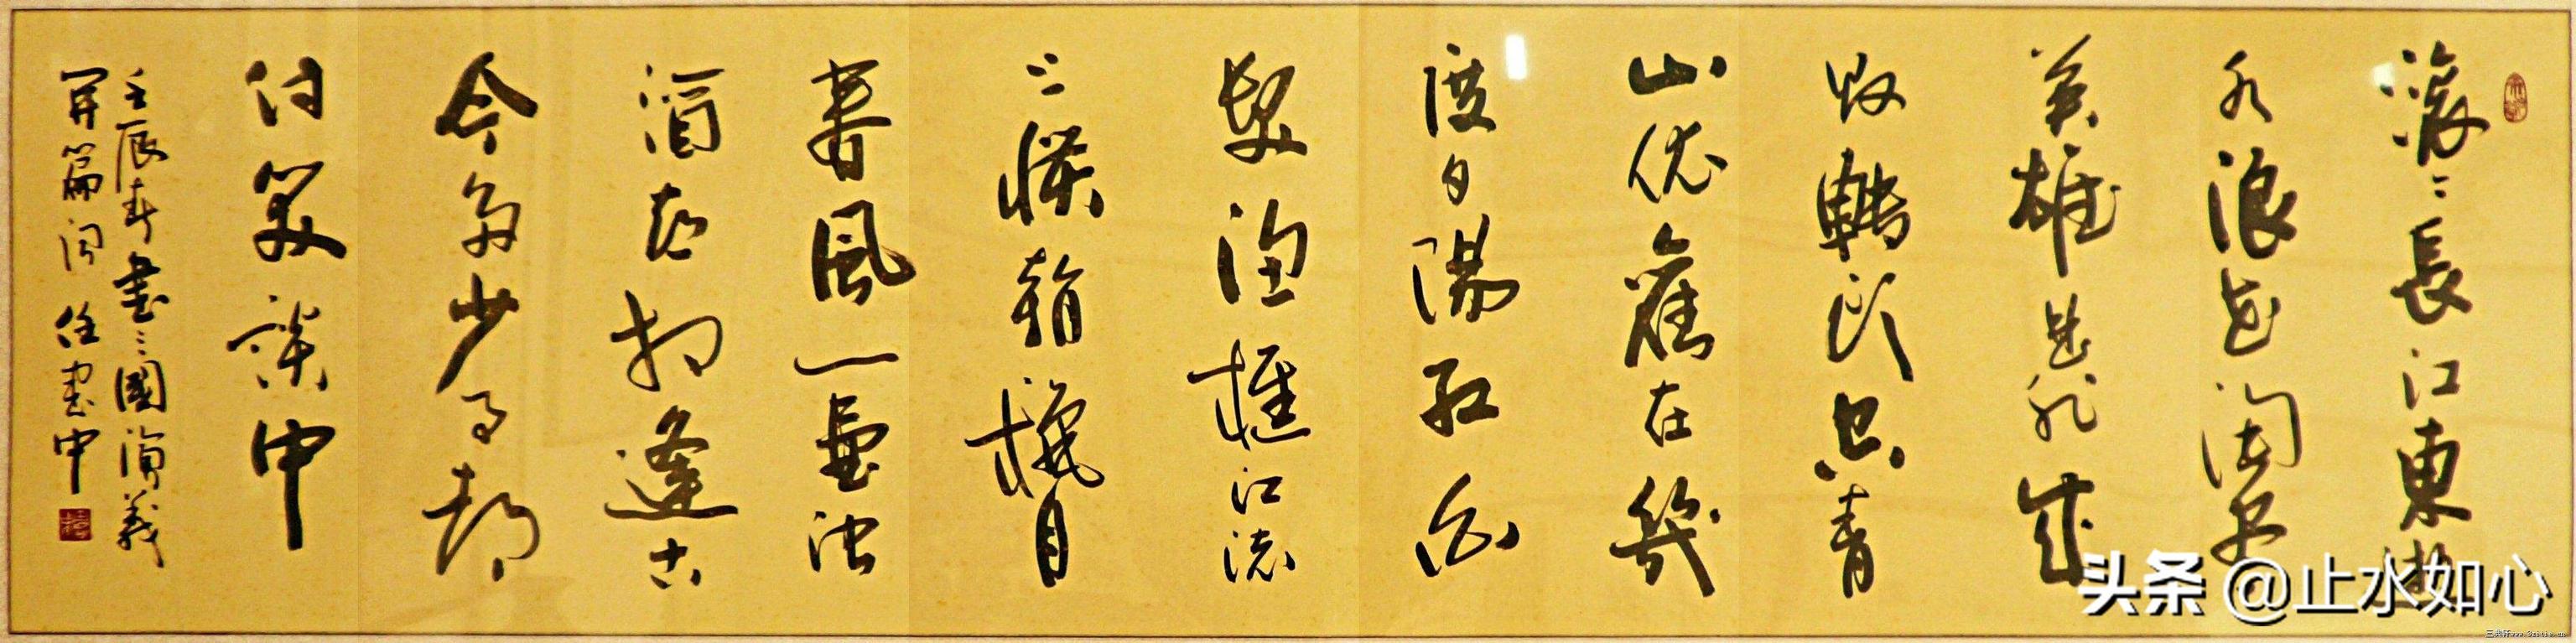 滚〻長江東逝
水浪花淘尽
英雄是非成
敗轉頭空青
山依舊在幾
度夕陽紅白
髮漁樵江渚
上慣看秋月
春風一壺濁
酒喜相逢古
今多少事都
付笑談中
壬辰春書三國演義
開篇詞 任書中
头条 @止水如心